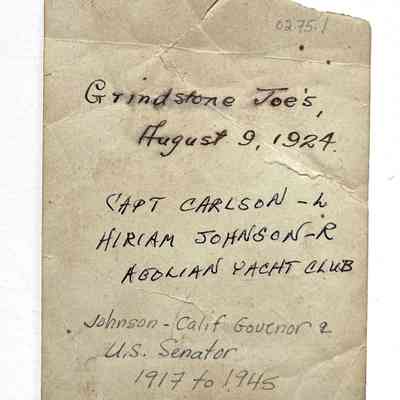 0275.1
Grindstone Joe's,
August 9, 1924.
CAPT CARLSON - L
HIRIAM JOHNSON - R
AEOLIAN YACHT CLUB
Johnson - Calif Govenor &
U.S. Senator
1917 to 1945